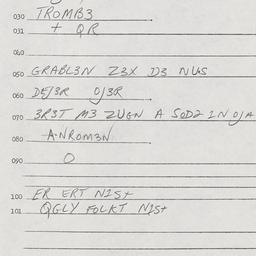 030 TROMB3
031 + QR
040
050 GRABL3N Z3X D3 NUS
060 DE/3R O/3R
070 3R3T M3 ZUGN A SOD2 IN O/A
080 A·NROM3N
090 O
100 ER ERT NIS+
101 QGLY FOLKT NIS+